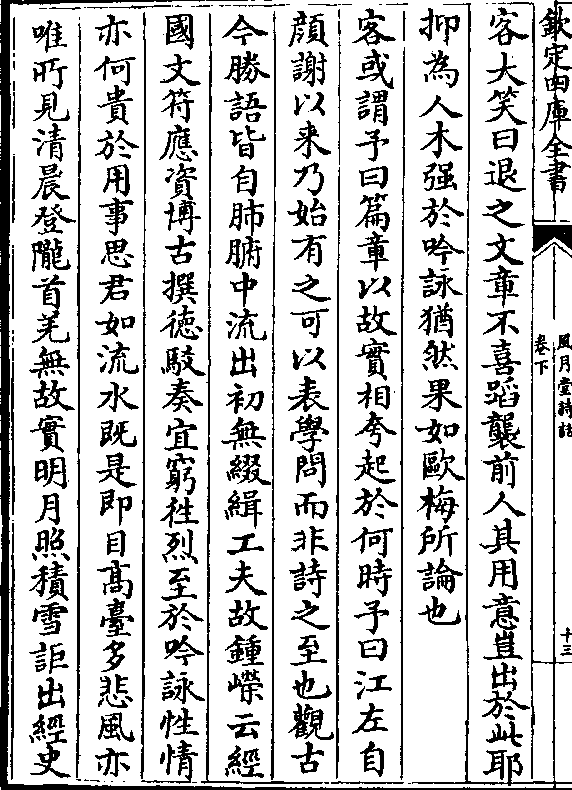 欽定四庫全書
風月堂詩話
卷下
十三
客大笑曰退之文章不喜蹈襲前人其用意豈出於此耶
抑為人木强於吟詠猶然果如歐梅所論也
客或謂予曰篇章以故實相夸起於何時予曰江左自
顔謝以来乃始有之可以表學問而非詩之至也觀古
今勝語皆自肺腑中流出初無綴緝工夫故鍾嶸云經
國文符應資博古撰徳駮奏宜窮徃烈至於吟詠性情
亦何貴於用事思君如流水既是即目髙臺多悲風亦
唯所見清晨登隴首羌無故實明月照積雪詎出經史